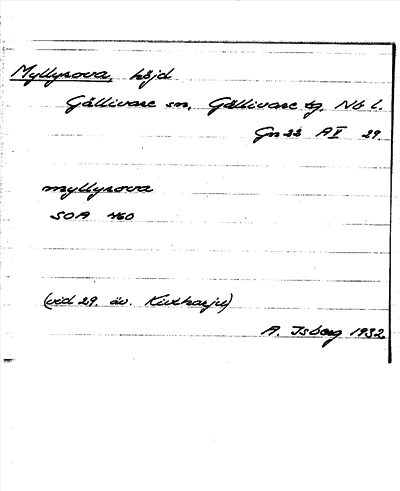 Myllyrova, höjd
Gällivare sn, Gällivare tg, Nb l.
Gn 22 AI 29.
myllyrova
SOA 460
(vid 29. äv. Kivtharju)
A. Isberg 1932